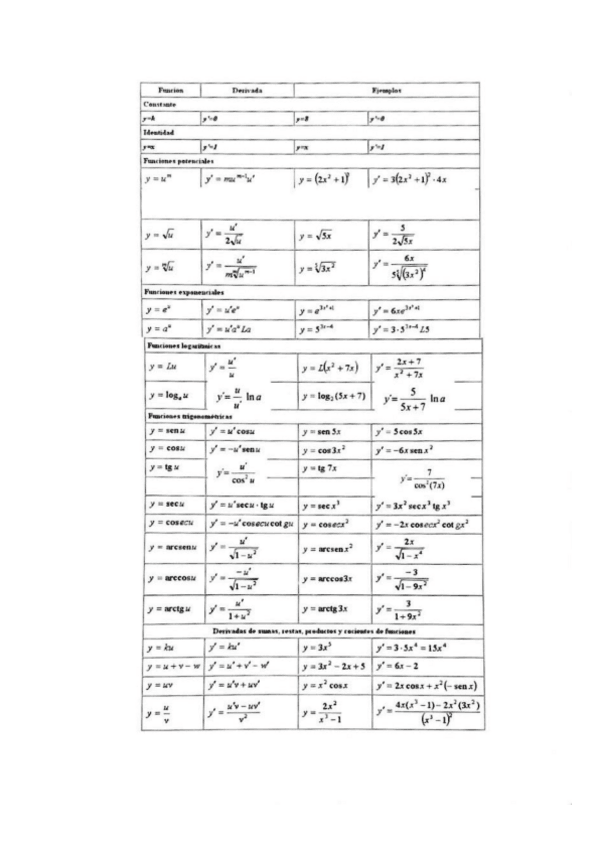 Funcion Derivada Ejemplos
Constante
y=k y'=0 y=8 y'=0
Identidad
y=x y'=1 y=x y'=1
Funciones potenciales
y = uᵐ y' = muᵐ⁻¹u' y = (2x² + 1)³ y' = 3(2x² + 1)² · 4x
y = √u y' = u'/(2√u) y = √5x y' = 5/(2√5x)
y = ᵐ√u y' = u'/(m ᵐ√uᵐ⁻¹) y = ⁵√3x² y' = 6x/(5 ⁵√(3x²)⁴)
Funciones exponenciales
y = eᵘ y' = u'eᵘ y = e³ˣ²⁺¹ y' = 6xe³ˣ²⁺¹
y = aᵘ y' = u'aᵘ La y = 5³ˣ⁻⁴ y' = 3·5³ˣ⁻⁴ L5
Funciones logarítmicas
y = Lu y' = u'/u y = L(x² + 7x) y' = (2x + 7)/(x² + 7x)
y = logₐ u y' = u/u' ln a y = log₂ (5x + 7) y' = 5/(5x + 7) ln a
Funciones trigonométricas
y = sen u y' = u' cos u y = sen 5x y' = 5 cos 5x
y = cos u y' = −u' sen u y = cos 3x² y' = −6x sen x²
y = tg u y' = u'/cos² u y = tg 7x y' = 7/cos²(7x)
y = sec u y' = u' sec u · tg u y = sec x³ y' = 3x² sec x³ tg x³
y = cosec u y' = −u' cosec u cot gu y = cosec x² y' = −2x cosec x² cot gx²
y = arcsen u y' = u'/√1 − u² y = arcsen x² y' = 2x/√1 − x⁴
y = arccos u y' = −u'/√1 − u² y = arccos 3x y' = −3/√1 − 9x²
y = arctg u y' = u'/(1 + u²) y = arctg 3x y' = 3/(1 + 9x²)
Derivadas de sumas, restas, productos y cocientes de funciones
y = ku y' = ku' y = 3x⁵ y' = 3·5x⁴ = 15x⁴
y = u + v − w y' = u' + v' − w' y = 3x² − 2x + 5 y' = 6x − 2
y = uv y' = u'v + uv' y = x² cos x y' = 2x cos x + x²(− sen x)
y = u/v y' = (u'v − uv')/v² y = 2x²/(x³ − 1) y' = (4x(x³ − 1) − 2x²(3x²))/(x³ − 1)²